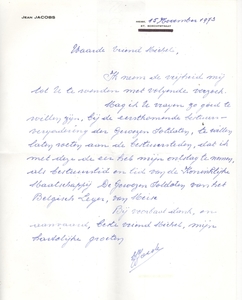 JEAN JACOBS
15 November 1973
Waarde Vriend
Ik neem de vrijheid mij
tot U te wenden met volgende verzoek.
Mag ik U vragen zo goed te
willen zijn, bij de eerstkomende bestuurs-
vergadering der Gewezen Soldaten, te willen
laten weten aan de bestuursleden, dat ik
met deze de eer heb mijn ontslag te nemen,
als bestuurslid en lid van de Koninklijke
Maatschappij De Gewezen Soldaten van het
Belgisch Leger, van
Bij voorbaat dank, en
aanvaard, beste vriend, mijn
hartelijke groeten